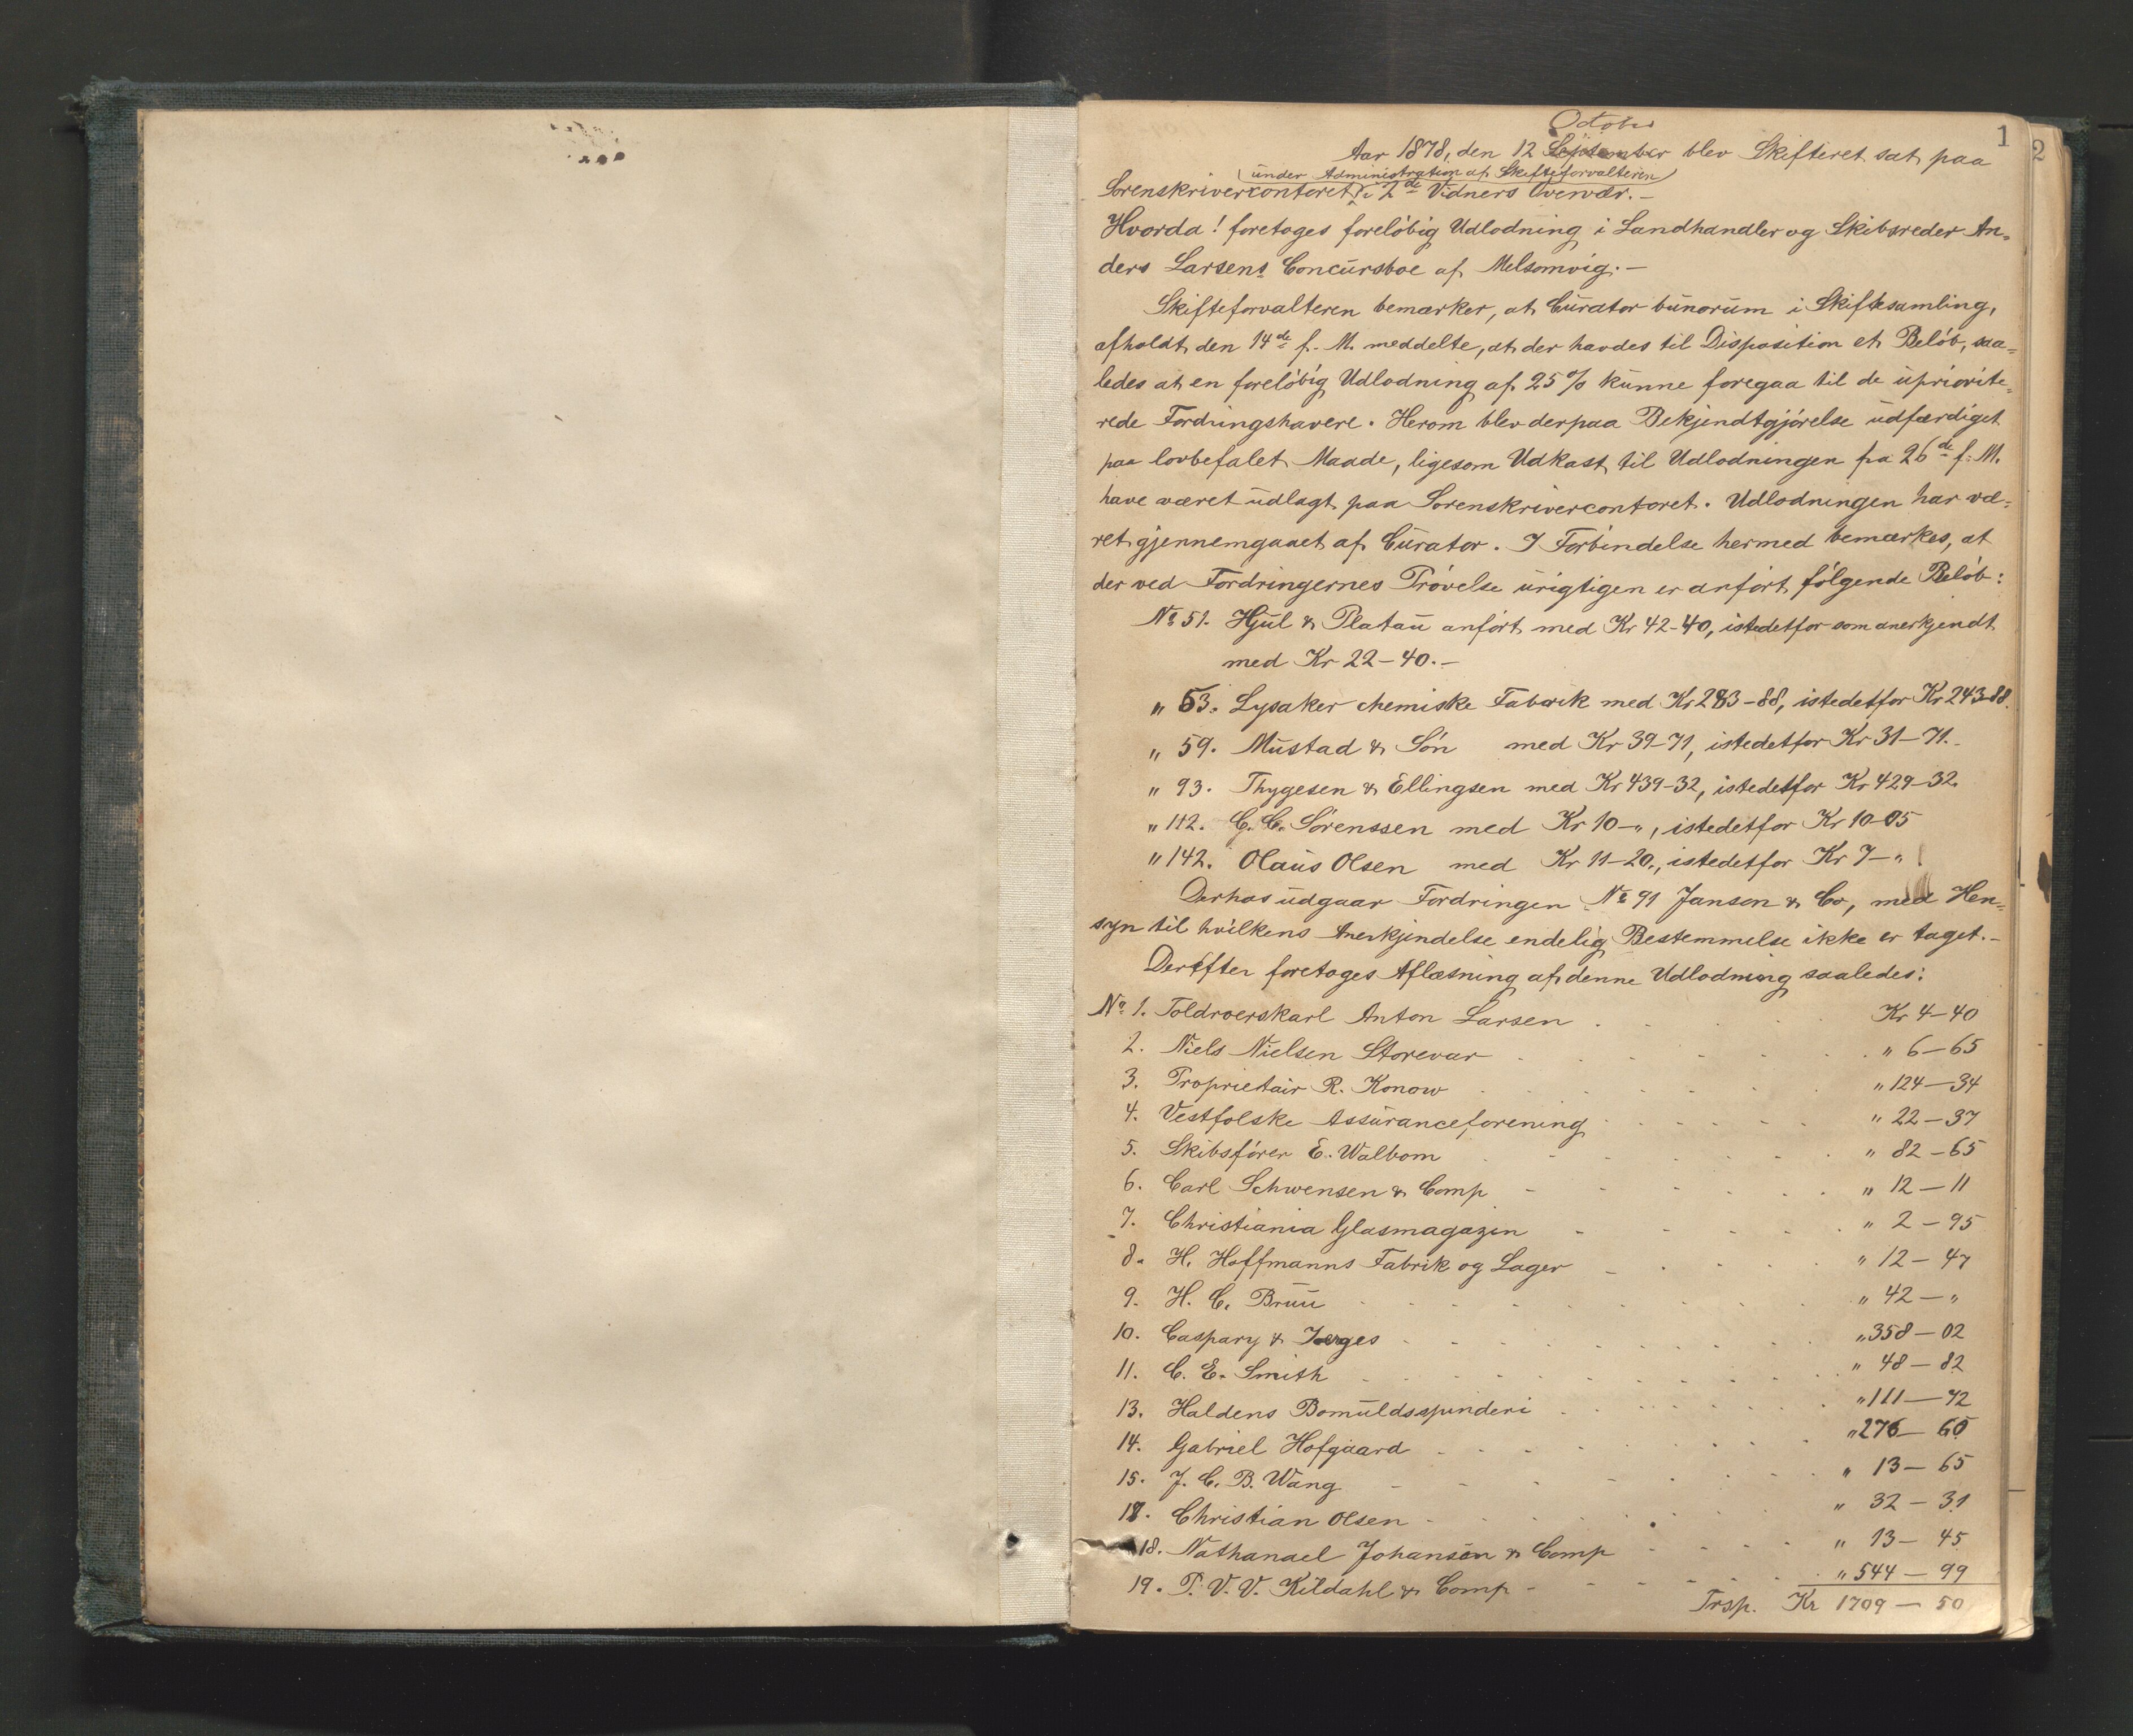 October
1
2
Aar 1878, den 12 September blev Skifteret sat paa
(under Administration af Skifteforvalteren)
Sorenskrivercontoret i 2de Vidners Overvær.-
Hvorda! foretoges foreløbig Udlodning i Landhandler og Skibsreder An=
ders Larsens Concursboe af Melsomvig.-
Skifteforvalteren bemærker, at Curator bunorum i Skiftesamling,
afholdt den 14de f. M. meddelte, at der havdes til Disposition et Beløb, saa=
ledes at en foreløbig Udlodning af 25% kunne foregaa til de upriorite=
rede Fordringshavere. Herom blev derpaa Bekjendtgjørelse udfærdiget
paa lovbefalet Maade, ligesom Udkast til Udlodningen fra 26de f. M.
have været udlagt paa Sorenskrivercontoret. Udlodningen har væ=
ret gjennemgaaet af Curator. I Forbindelse hermed bemærkes, at
der ved Fordringernes Prøvelse urigtigen er anført følgende Beløb:
No 51. Hjul & Platau anført med Kr 42-40, istedetfor som anerkjendt
med Kr 22-40.-
" 53. Lysaker chemiske Fabrik med Kr 283-88, istedetfor Kr 243-88.
" 59. Mustad & Søn med Kr 39-71, istedetfor Kr 31-71.-
" 93. Thygesen & Ellingsen med Kr 439-32, istedetfor Kr 429-32.
" 112. C. C. Sørenssen med Kr 10-", istedetfor Kr 10-05
" 142. Olaus Olsen med Kr 11-20., istedetfor Kr 7-"
Derhos udgaar Fordringen No 91 Janson & Co, med Hen=
syn til hvilkens Anerkjendelse endelig Bestemmelse ikke er taget.-
Derefter foretoges Aflæsning af denne Udlodning saaledes:
No 1. Toldroerskarl Anton Larsen Kr 4-40
2. Niels Nielsen Storevar " 6-65
3. Proprietair R. Konow " 124-34
4. Vestfolske Assuranceforening " 22-37
5. Skibsfører E. Walbom " 82-65
6. Carl Schwensen & Comp " 12-11
7. Christiania Glasmagazin " 2-95
8. H. Hoffmanns Fabrik og Lager " 12-47
9. H. C. Bruu " 42-"
10. Caspary & Jerges " 358-02
11. C. E. Smith " 48-82
13. Haldens Bomuldsspinderi " 111-72
14. Gabriel Hofgaard " 276-60
15. J. C. B. Wang " 13-65
17. Christian Olsen " 32-31
18. Nathanael Johansen & Comp " 13-45
19. P. V. V. Kildahl & Comp " 544-99
Trsp. Kr 1709-50